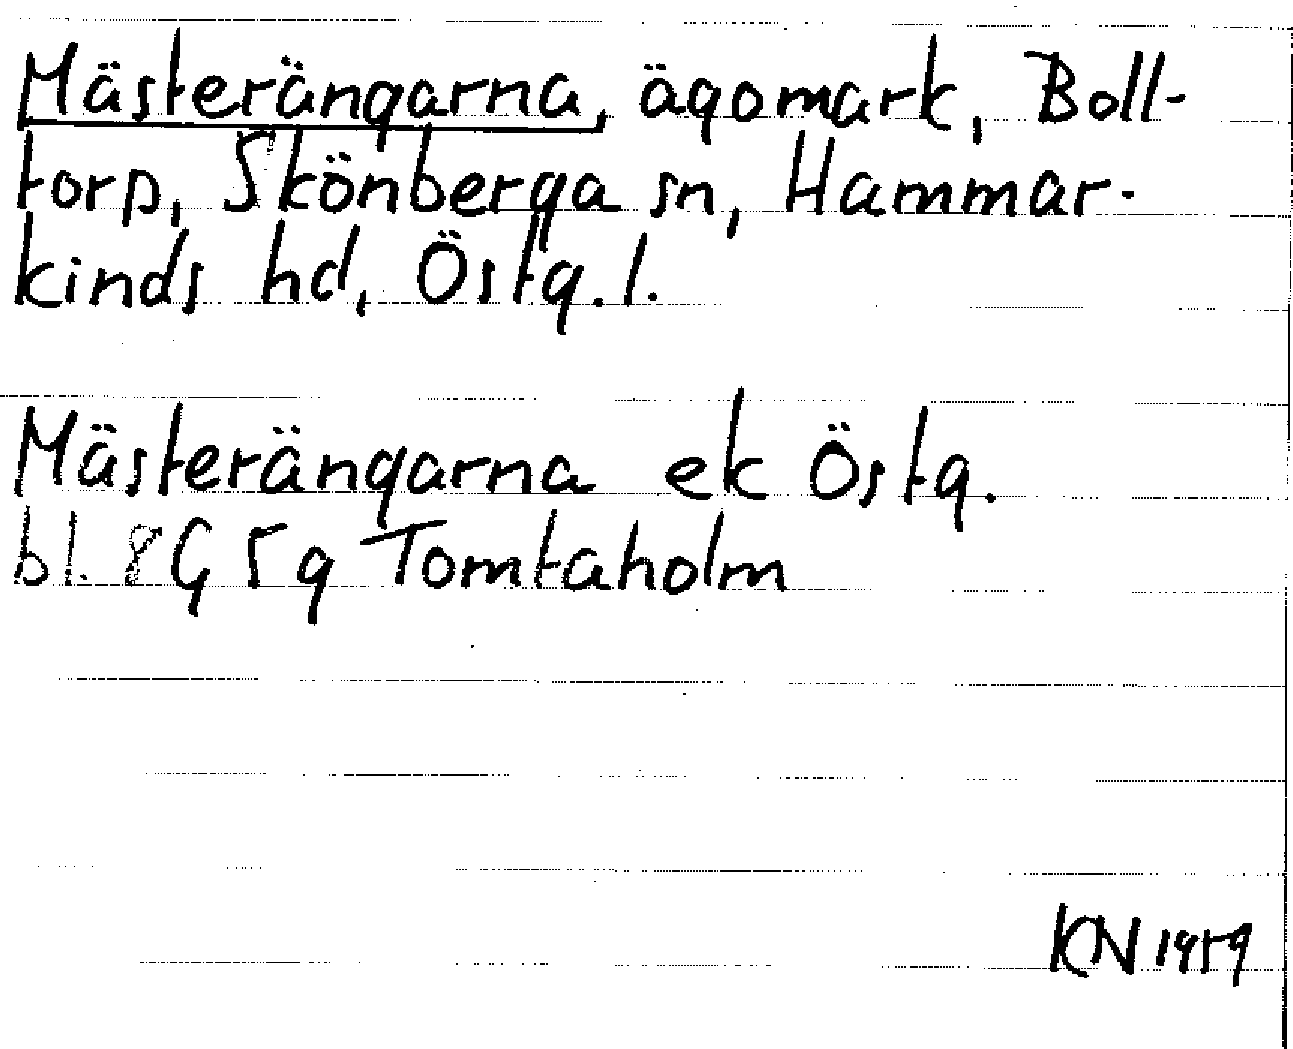 Mästerängarna, ägomark, Boll-
torp, Skönberga sn, Hammar-
kinds hd, Östg. l.
Mästerängarna ek Östg.
bl. 8G 5g Tomtaholm
KN 1959